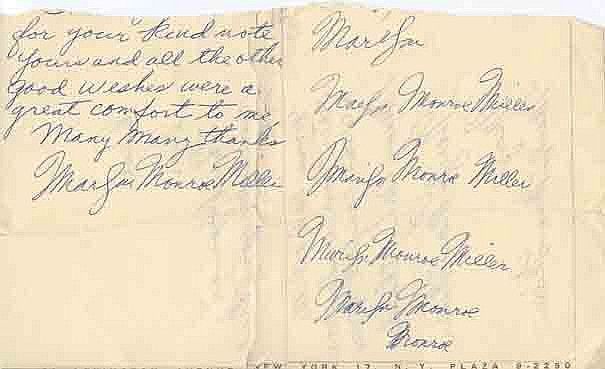 for your kind note
yours and all the other
good wishes were a
great comfort to me
Many Many thanks
Marilyn Monroe Miller
Marilyn
Marilyn Monroe Miller
Marilyn Monroe Miller
Marilyn Monroe Miller
Marilyn Monroe
Monroe
NEW YORK 17, N. Y. PLAZA 9-2250